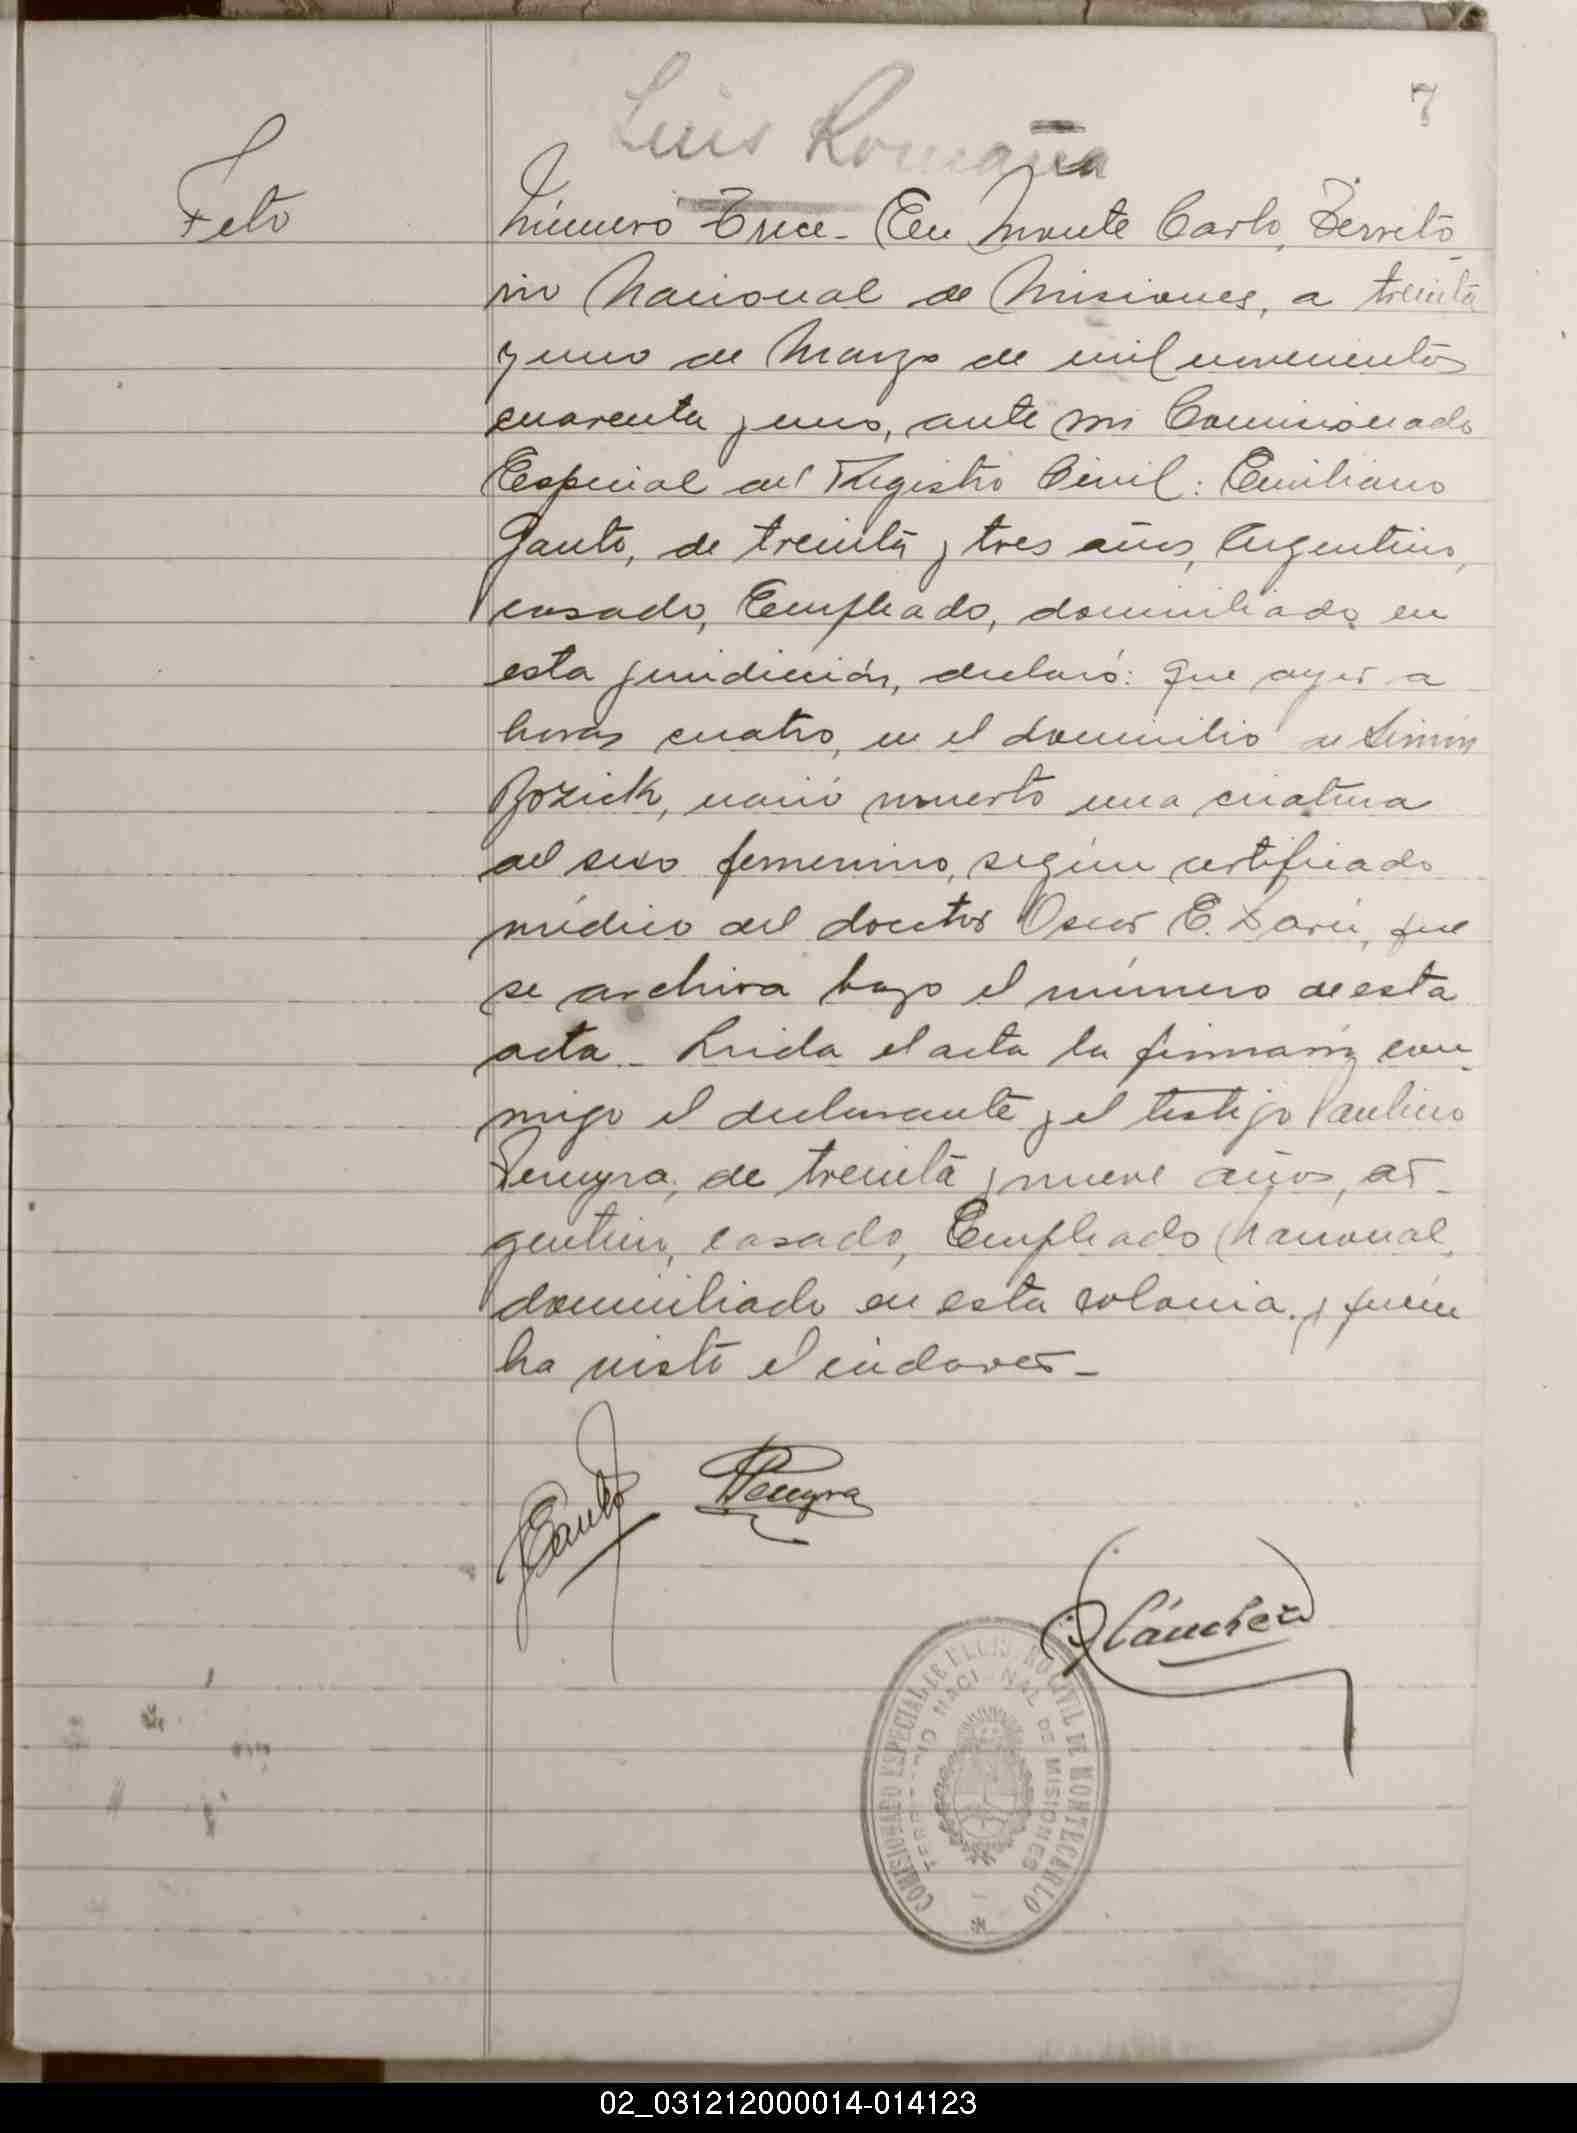 Luis Romaña
7
Feto
Número Trece- En Monte Carlo, Territo-
rio Nacional de Misiones, a treinta
y uno de Marzo de mil novecientos
cuarenta y uno, ante mi Comisionado
Especial del Registro Civil: Emiliano
Gauto, de treinta y tres años, Argentino,
casado, Empleado, domiciliado en
esta juridición, declaró: que ayer a
horas cuatro, en el domicilio de Simón
Bozick, nació muerto una criatura
del sexo femenino, según certificado
médico del doctor Oscar E. Darú, que
se archiva bajo el número de esta
acta.- Leida el acta la firmaron con-
migo el declarante y el testigo Paulino
Pereyra, de treinta y nueve años, ar-
gentino, casado, Empleado Nacional,
domiciliado en esta colonia, y quien
ha visto el cadaver-
EGauto
PPereyra
Sánchez
COMISIONADO ESPECIAL DE REGISTRO CIVIL DE MONTECARLO
TERRITORIO NACIONAL DE MISIONES
02_031212000014-014123